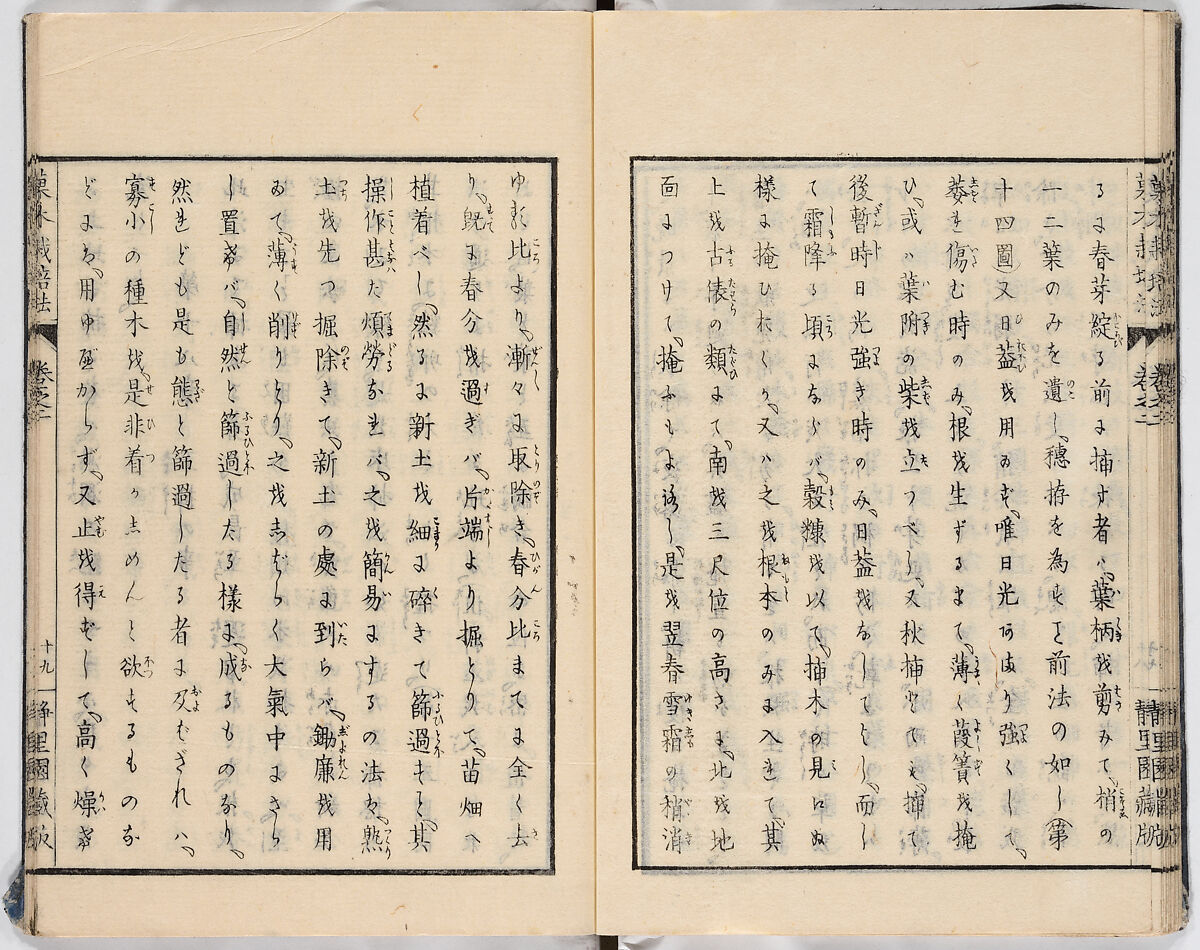 菓木栽培法 巻之二 静里園蔵版
るに春芽綻る前に挿す者ハ、葉柄を剪みて、梢の
一二葉のみを遺し、穗拵を為すこと前法の如し(第
十四圖)又日葢を用ゐず、唯日光あまり強くして、
萎れ傷む時のみ、根を生ずるまて、薄く葭簀を掩
ひ、或ハ葉附の柴を立つべし、又秋挿とても、挿て
後暫時日光強き時のみ、日葢をなしてよし、而し
て霜降る頃にならバ、穀糠を以て、挿木の見ロぬ
様に掩ひおくか、又ハ之を根本のみに入れて、其
上を古俵の類にて、南を三尺位の高さに、北を地
面につけて、掩ふもよろし、是を翌春雪霜の稍消
ゆる比より、漸々に取除き、春分比まてに全く去
り、既に春分を過ぎバ、片端より掘とりて、苗畑へ
植着べし、然るに新土を細に碎きて篩過すこと、其
操作甚た煩勞なれバ、之を簡易にするの法ハ、熟
土を先つ掘除きて、新土の處に到らバ、鋤廉を用
ゐて、薄く削りとり、之を志ばらく大氣中にさら
し置きバ、自然と篩過したる樣に、成るものなり、
然れども是も態と篩過したる者に及むざれハ、
寡小の種木を是非着かしめんと欲するものな
どにハ、用ゆ可からず、又止を得ずして、高く燥き
菓木栽培法 巻之二 十九 静里園蔵版